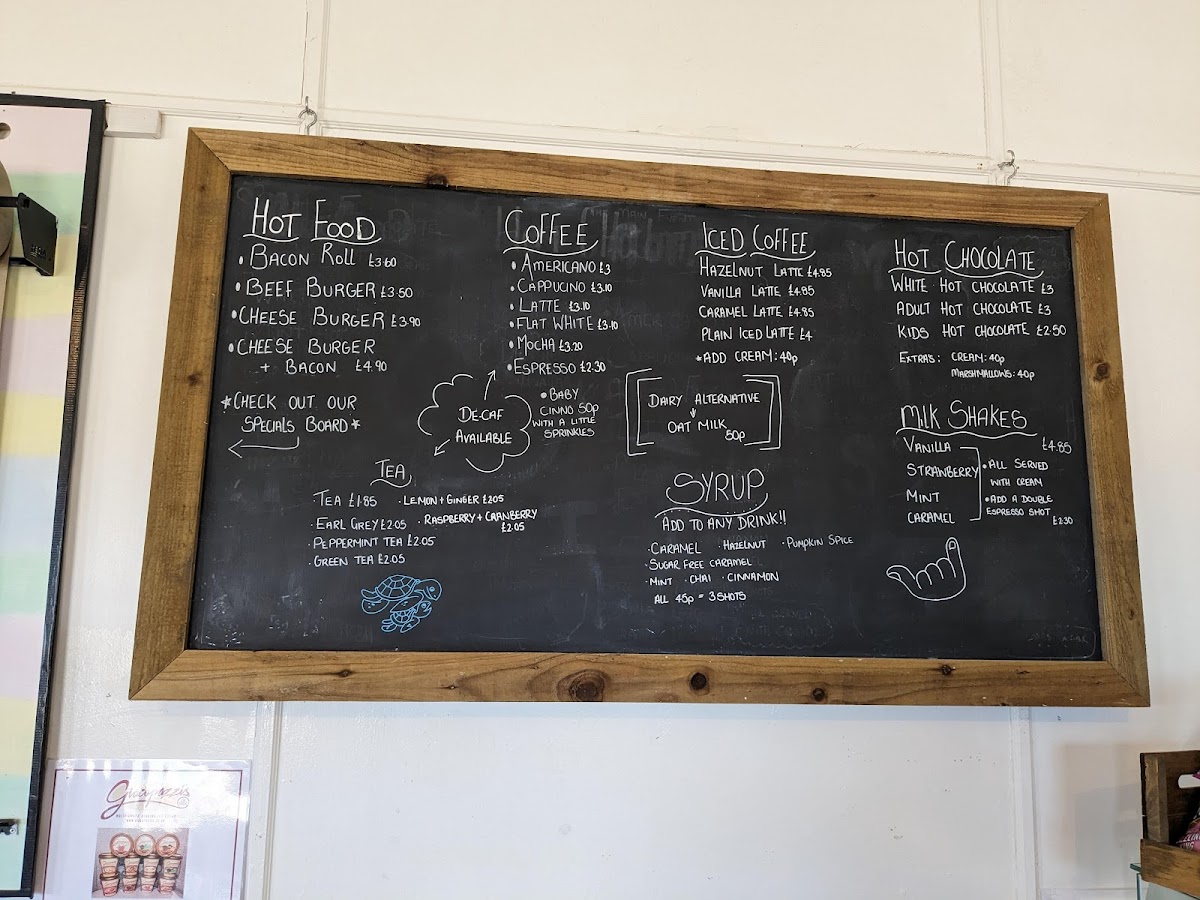 HOT FOOD
• BACON ROLL £3.60
• BEEF BURGER £3.50
• CHEESE BURGER £3.90
• CHEESE BURGER
+ BACON £4.90
*CHECK OUT OUR
SPECIALS BOARD*
COFFEE
• AMERICANO £3
• CAPPUCINO £3.10
• LATTE £3.10
• FLAT WHITE £3.10
• MOCHA £3.20
• ESPRESSO £2.30
DE-CAF
AVAILABLE
• BABY
CINNO 50p
WITH A LITTLE
SPRINKLES
ICED COFFEE
HAZELNUT LATTE £4.85
VANILLA LATTE £4.85
CARAMEL LATTE £4.85
PLAIN ICED LATTE £4
*ADD CREAM: 40p
DAIRY ALTERNATIVE
OAT MILK
50p
HOT CHOCOLATE
WHITE HOT CHOCOLATE £3
ADULT HOT CHOCOLATE £3
KIDS HOT CHOCOLATE £2.50
EXTRA'S: CREAM: 40p
MARSHMALLOWS: 40p
MILK SHAKES
VANILLA £4.85
STRAWBERRY
MINT
CARAMEL
• ALL SERVED
WITH CREAM
• ADD A DOUBLE
ESPRESSO SHOT
£2.30
TEA
TEA £1.85 • LEMON + GINGER £2.05
• EARL GREY £2.05 • RASPBERRY + CRANBERRY
£2.05
• PEPPERMINT TEA £2.05
• GREEN TEA £2.05
SYRUP
ADD TO ANY DRINK!!
• CARAMEL • HAZELNUT • PUMPKIN SPICE
• SUGAR FREE CARAMEL
• MINT • CHAI • CINNAMON
ALL 45p = 3 SHOTS